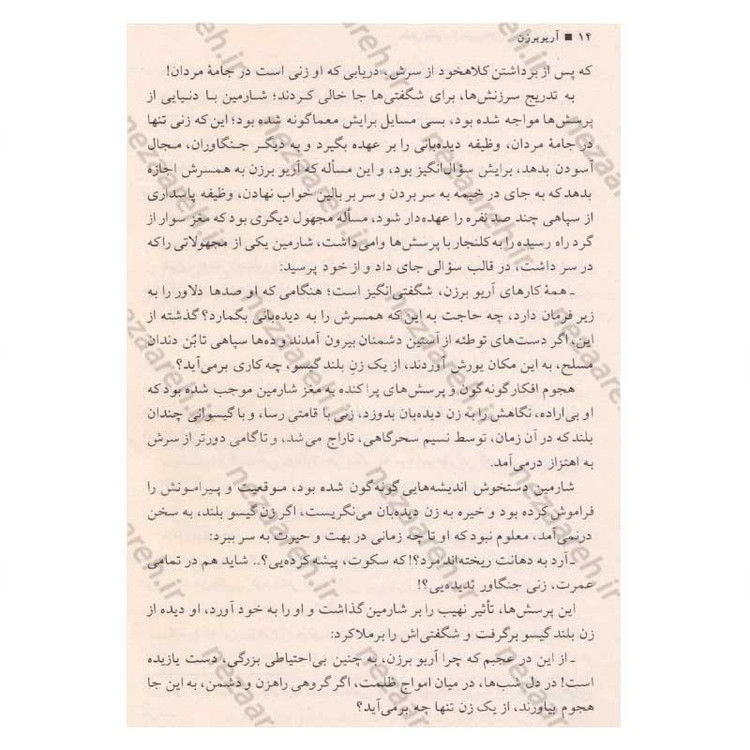 ۱۴ ■ آریوبرزن
که پس از برداشتن کلاهخود از سرش، دریابی که او زنی است در جامهٔ مردان!
به تدریج سرزنش‌ها، برای شگفتی‌ها جا خالی کردند؛ شارمین با دنیایی از
پرسش‌ها مواجه شده بود، بسی مسایل برایش معماگونه شده بود؛ این که زنی تنها
در جامهٔ مردان، وظیفه دیده‌بانی را بر عهده بگیرد و به دیگر جنگاوران، مجال
آسودن بدهد، برایش سؤال‌انگیز بود، و این مسأله که آریو برزن به همسرش اجازه
بدهد که به جای در خیمه به سر بردن و سر بر بالین خواب نهادن، وظیفه پاسداری
از سپاهی چند صد نفره را عهده‌دار شود، مسأله مجهول دیگری بود که مغز سوار از
گرد راه رسیده را به کلنجار با پرسش‌ها وامی‌داشت، شارمین یکی از مجهولاتی را که
در سر داشت، در قالب سؤالی جای داد و از خود پرسید:
ـ همهٔ کارهای آریو برزن، شگفتی‌انگیز است؛ هنگامی که او صدها دلاور را به
زیر فرمان دارد، چه حاجت به این که همسرش را به دیده‌بانی بگمارد؟ گذشته از
این، اگر دست‌های توطئه از آستین دشمنان بیرون آمدند و ده‌ها سپاهی تا بُن دندان
مسلح، به این مکان یورش آوردند، از یک زنِ بلند گیسو، چه کاری برمی‌آید؟
هجوم افکار گونه‌گون و پرسش‌های پراکنده به مغز شارمین موجب شده بود که
او بی‌اراده، نگاهش را به زن دیده‌بان بدوزد، زنی با قامتی رسا، و با گیسوانی چندان
بلند که در آن زمان، توسط نسیم سحرگاهی، تاراج می‌شد، و تا گامی دورتر از سرش
به اهتزاز درمی‌آمد.
شارمین دستخوش اندیشه‌هایی گونه‌گون شده بود، موقعیت و پیرامونش را
فراموش کرده بود و خیره به زن دیده‌بان می‌نگریست، اگر زن گیسو بلند، به سخن
درنمی‌آمد، معلوم نبود که او تا چه زمانی در بهت و حیرت به سر ببرد:
ـ آرد به دهانت ریخته‌اند مرد؟! که سکوت، پیشه کرده‌یی؟.. شاید هم در تمامی
عمرت، زنی جنگاور ندیده‌یی؟!
این پرسش‌ها، تأثیر نهیب را بر شارمین گذاشت و او را به خود آورد، او دیده از
زن بلند گیسو برگرفت و شگفتی‌اش را برملا کرد:
ـ از این در عجبم که چرا آریو برزن، به چنین بی‌احتیاطی بزرگی، دست یازیده
است! در دل شب‌ها، در میان امواج ظلمت، اگر گروهی راهزن و دشمن، به این جا
هجوم بیاورند، از یک زن تنها چه برمی‌آید؟
nezaareh.ir